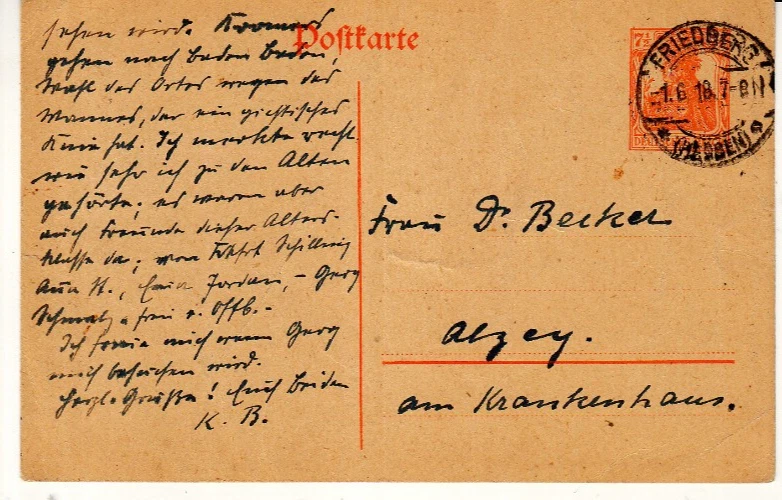 sehen wird. Kromers
gehen nach Baden Baden,
Wahl des Ortes wegen des
Mannes, der ein gichtisches
Knie hat. Ich merkte recht
wie sehr ich zu den Alten
gehörte; es waren aber
auch Freunde dieser Alters-
klasse da; von Schilling
Anna H., Jordan, - Georg
Schmalz u. Frau v. Offb. -
Ich freue mich wenn Georg
mich besuchen wird.
Herzl. Grüße! Euch beiden
K. B.
Postkarte
7½
FRIEDBERG
-1.6.18.7-8N
(HESSEN)
Frau Dr. Becker
Alzey.
am Krankenhaus.